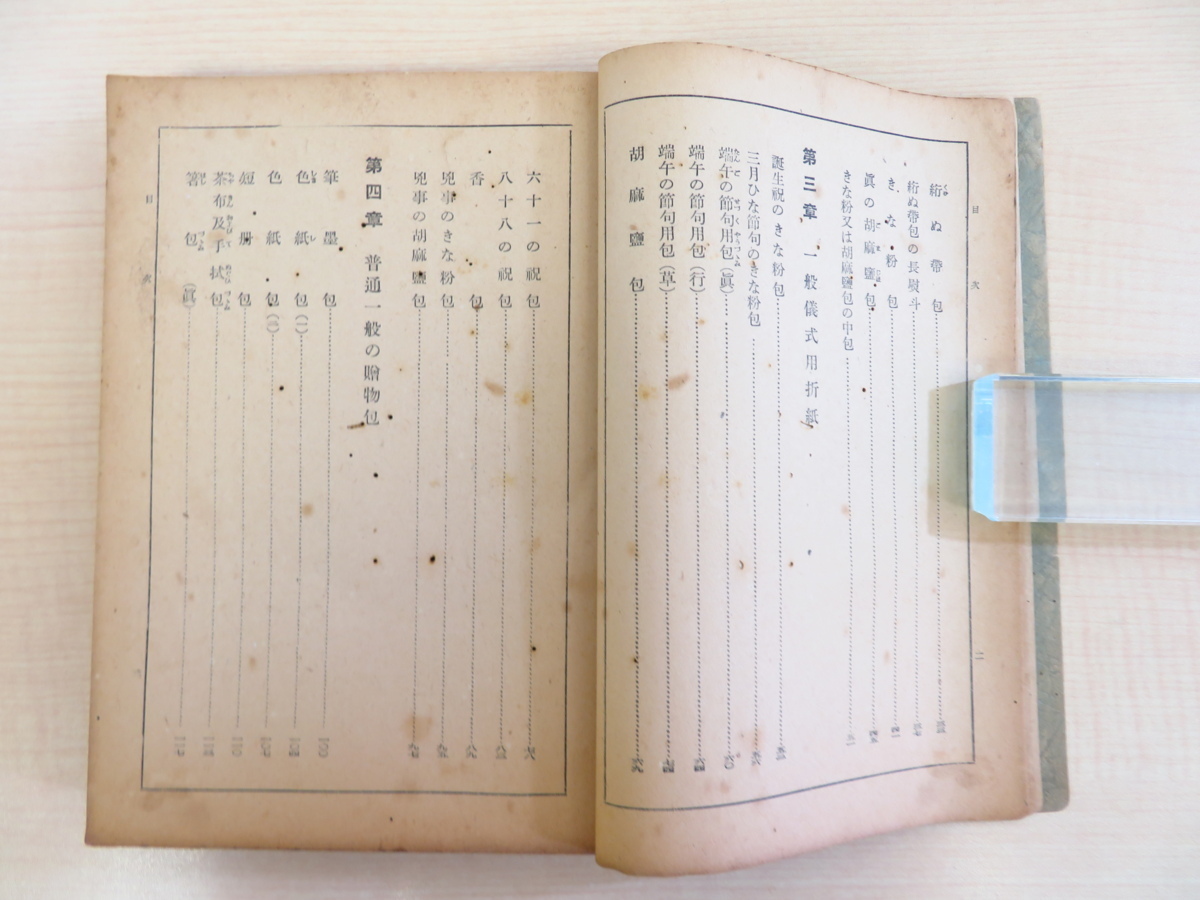 目次
二
絎ぬ帶包
絎ぬ帶包の長熨斗
きな粉包
眞の胡麻鹽包
きな粉又は胡麻鹽包の中包
第三章 一般儀式用折紙
誕生祝のきな粉包
三月ひな節句のきな粉包
端午の節句用包（眞）
端午の節句用包（行）
端午の節句用包（草）
胡麻鹽包
六十一の祝包
八十八の祝包
香包
兇事のきな粉包
兇事の胡麻鹽包
第四章 普通一般の贈物包
筆墨包
色紙包（一）
色紙包（二）
短册包
茶布及手拭包
箸包（眞）
目次